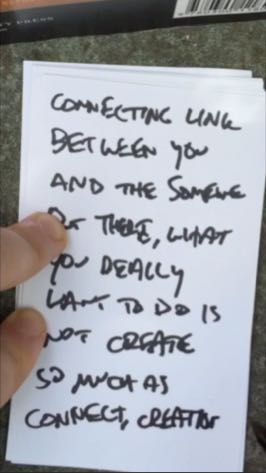 TY PRESS
CONNECTING LINK
BETWEEN YOU
AND THE SOMEONE
OUT THERE, WHAT
YOU REALLY
WANT TO DO IS
NOT CREATE
SO MUCH AS
CONNECT, CREATION